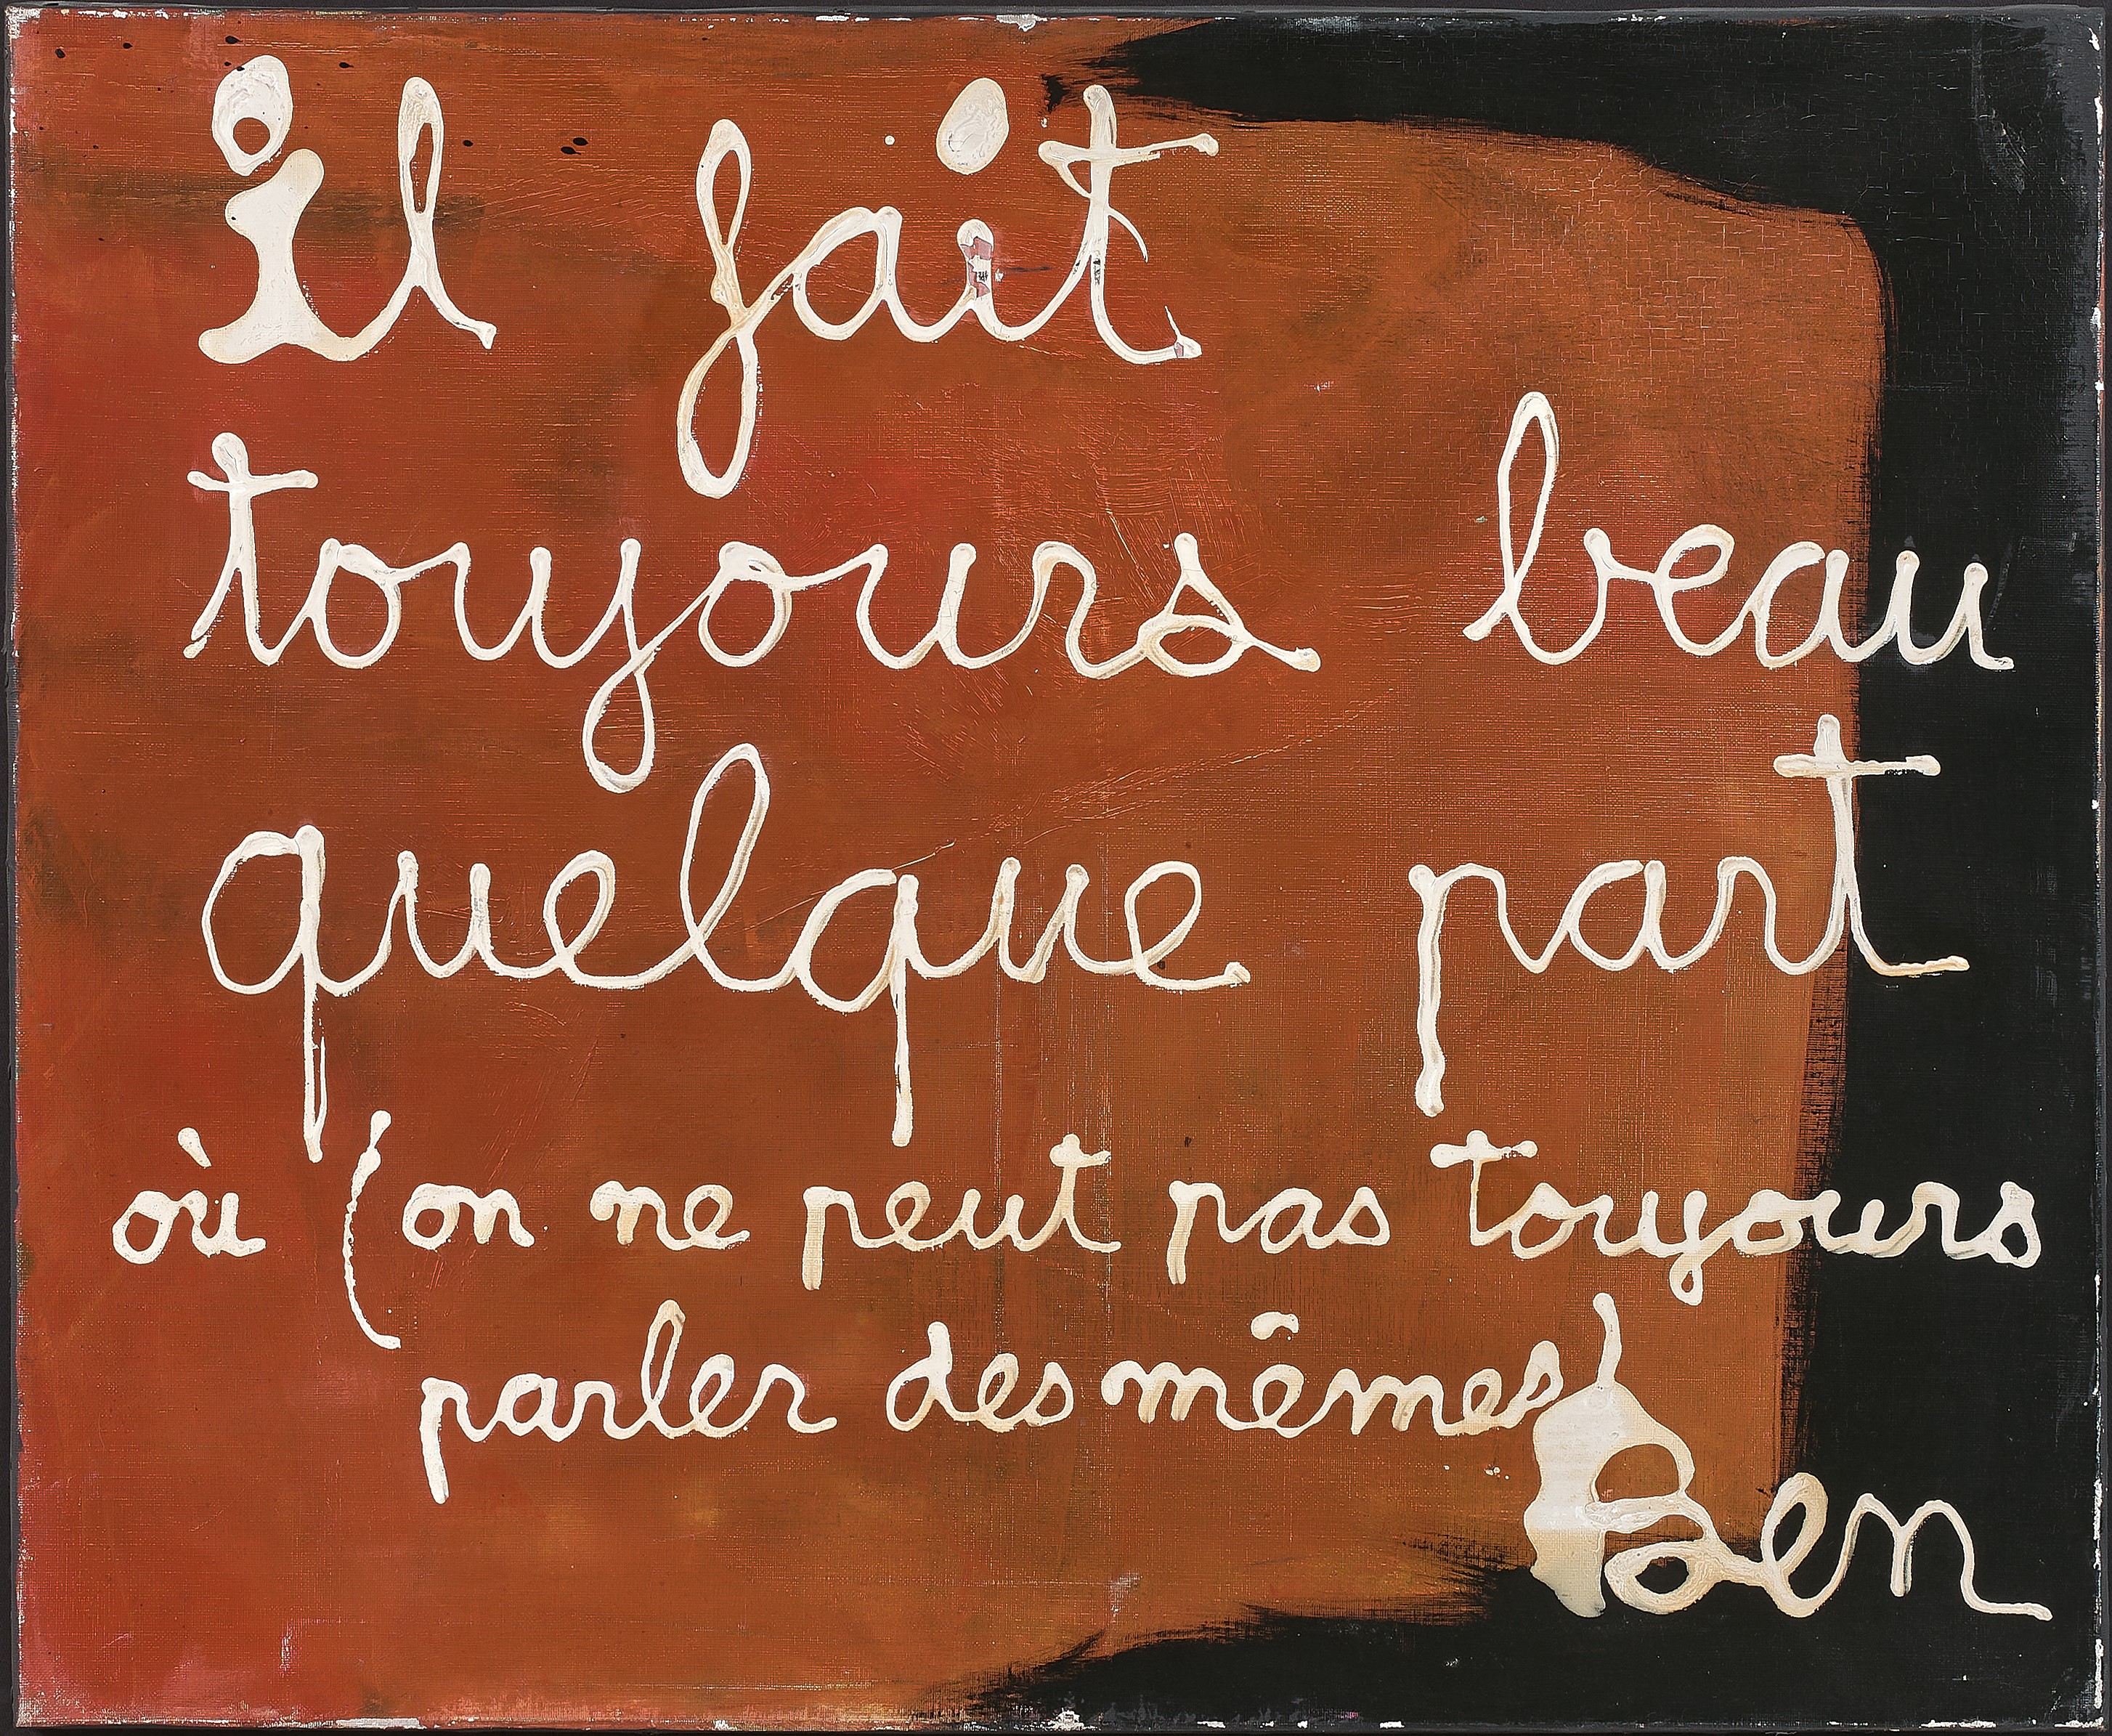 il fait
toujours beau
quelque part
où (on ne peut pas toujours
parler des mêmes)
Ben